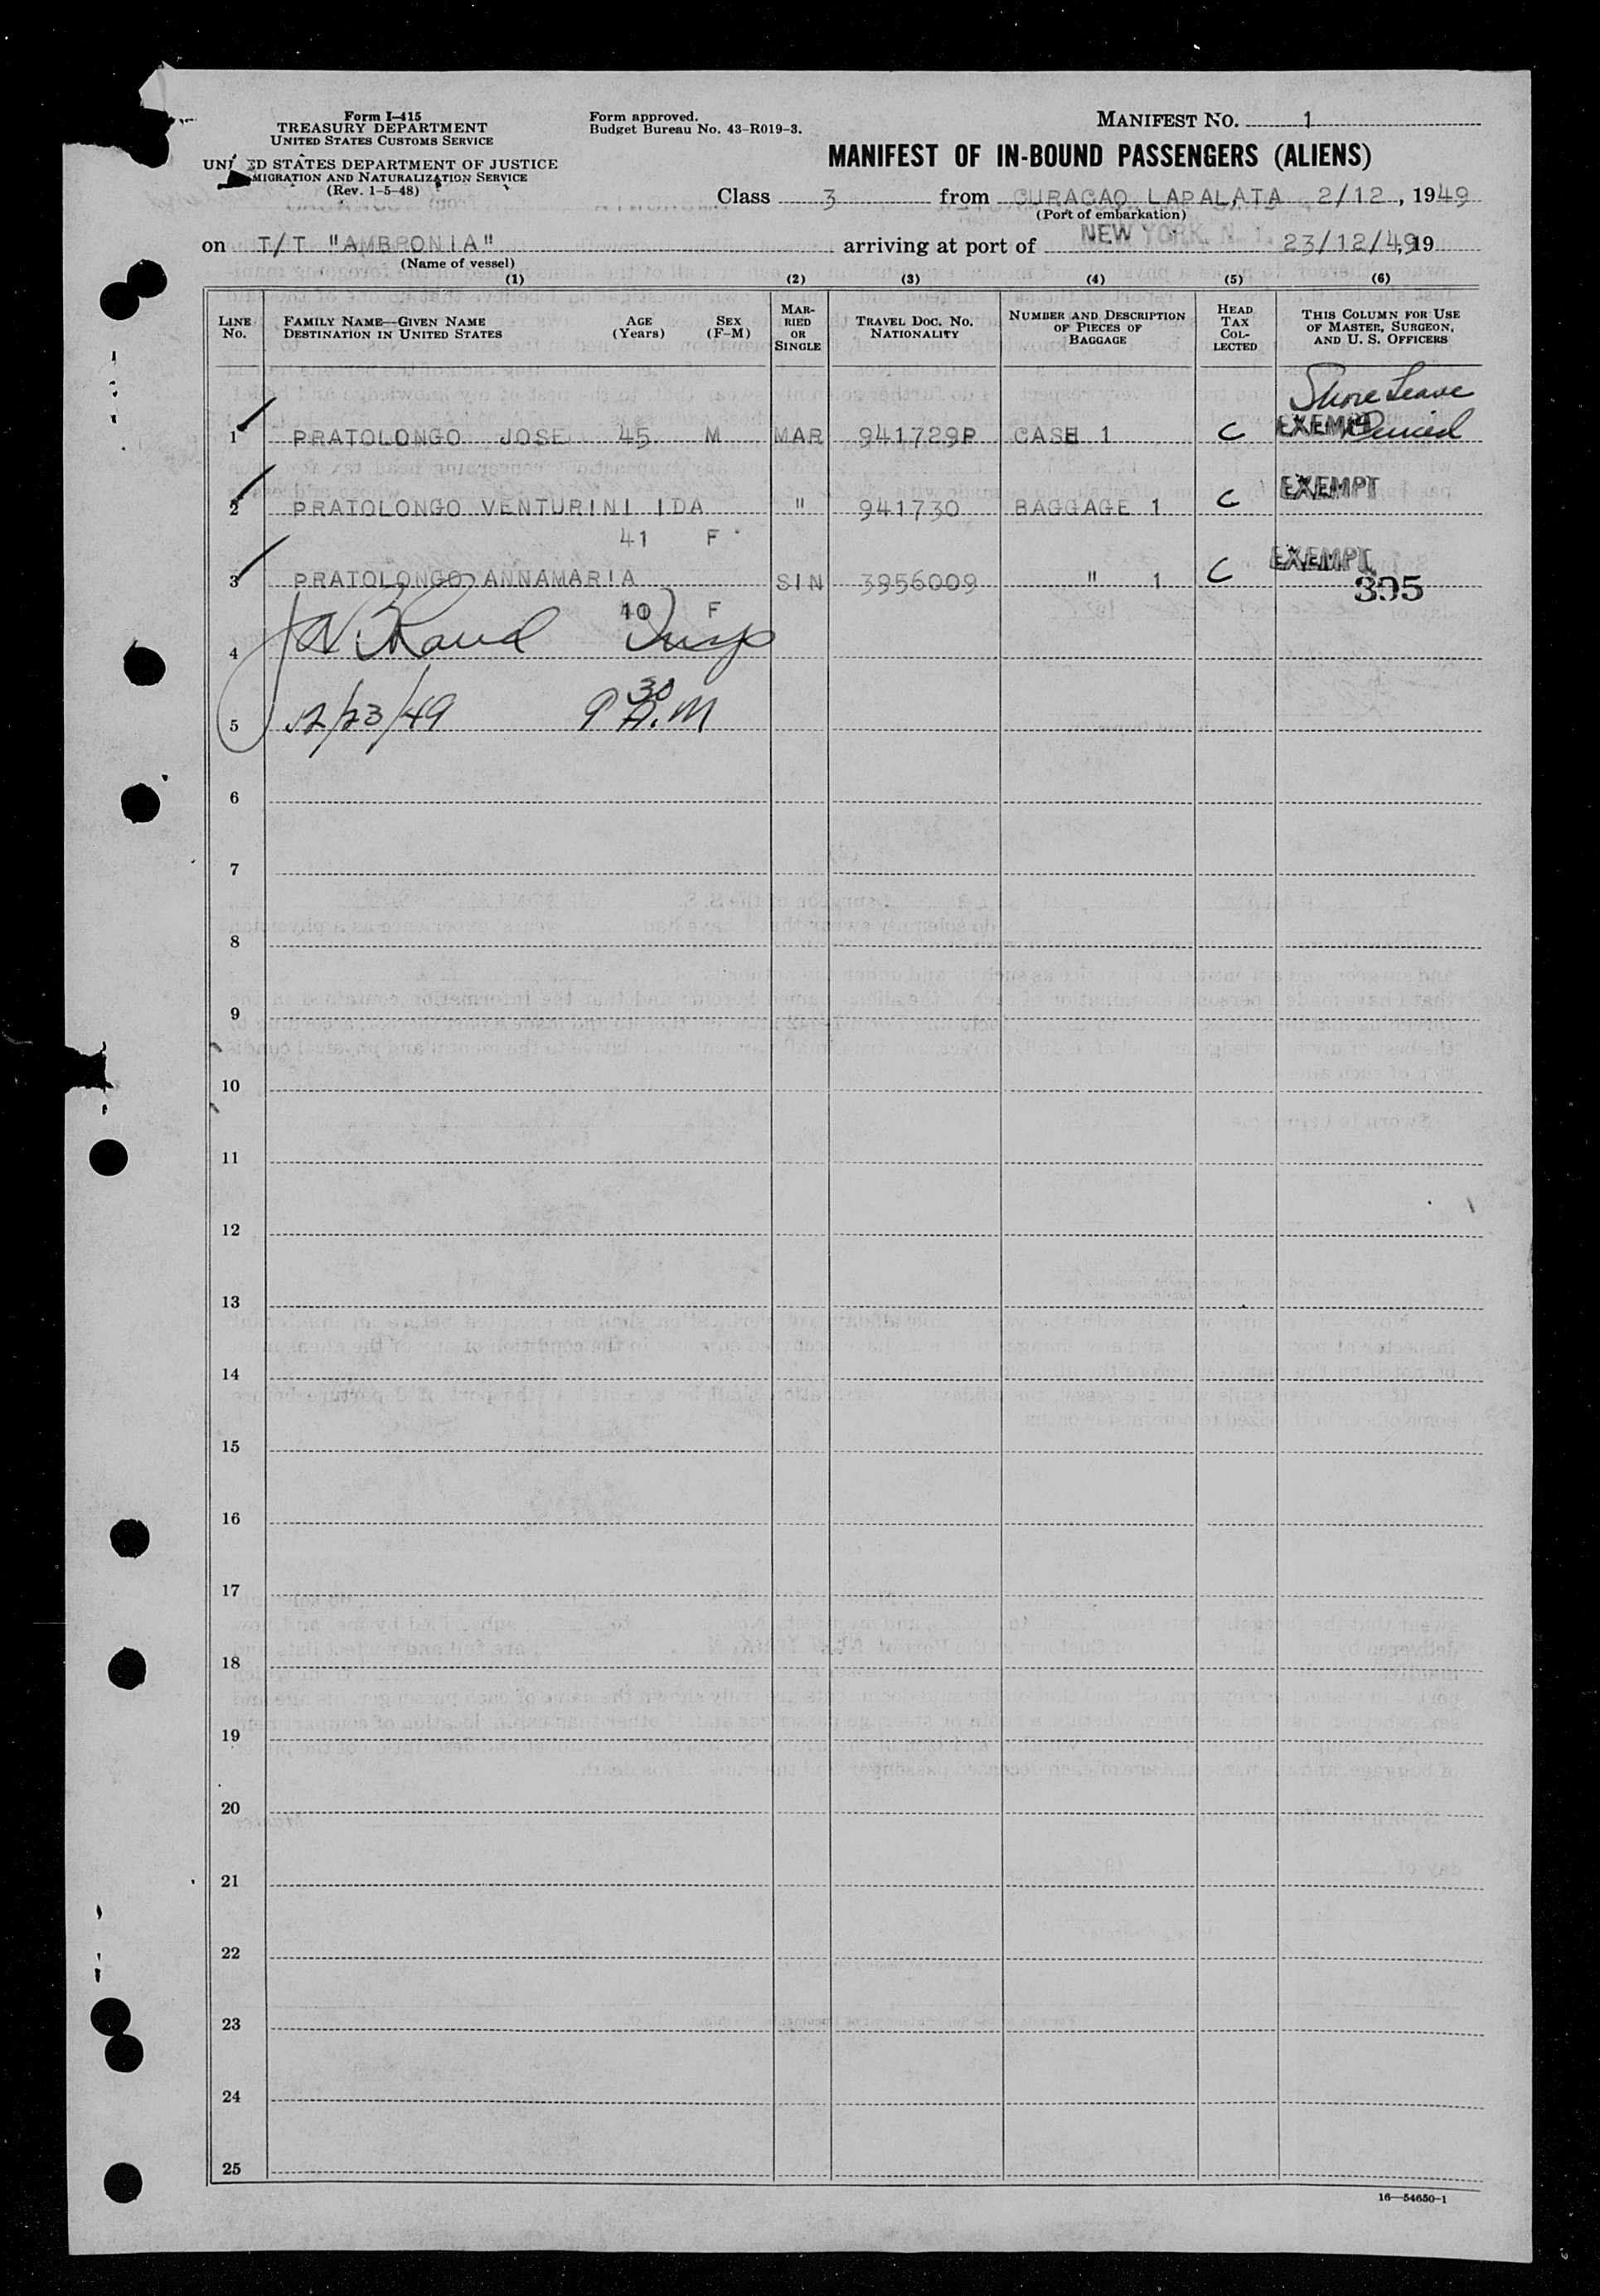 Form I-415
TREASURY DEPARTMENT
UNITED STATES CUSTOMS SERVICE
UNI ED STATES DEPARTMENT OF JUSTICE
MIGRATION AND NATURALIZATION SERVICE
(Rev. 1-5-48)
Form approved.
Budget Bureau No. 43-R019-3.
MANIFEST NO. 1
MANIFEST OF IN-BOUND PASSENGERS (ALIENS)
Class 3 from CURACAO LAPALATA 2/12, 1949
(Port of embarkation)
on T/T "AMBRONIA" arriving at port of NEW YORK, N. Y. 23/12/49, 19
(Name of vessel)
(1) (2) (3) (4) (5) (6)
LINE No. FAMILY NAME—GIVEN NAME DESTINATION IN UNITED STATES AGE (Years) SEX (F-M) MARRIED OR SINGLE TRAVEL DOC. NO. NATIONALITY NUMBER AND DESCRIPTION OF PIECES OF BAGGAGE HEAD TAX COLLECTED THIS COLUMN FOR USE OF MASTER, SURGEON, AND U. S. OFFICERS
Shore Leave
Denied
1 PRATOLONGO JOSE 45 M MAR 941729P CASE 1 C EXEMPT
2 PRATOLONGO VENTURINI IDA " 941730 BAGGAGE 1 C EXEMPT
41 F
3 PRATOLONGO ANNAMARIA SIN 3956009 " 1 C EXEMPT
395
10 F
4 Insp
5 12/23/49 9 30 A.M
6
7
8
9
10
11
12
13
14
15
16
17
18
19
20
21
22
23
24
25
16—54650-1